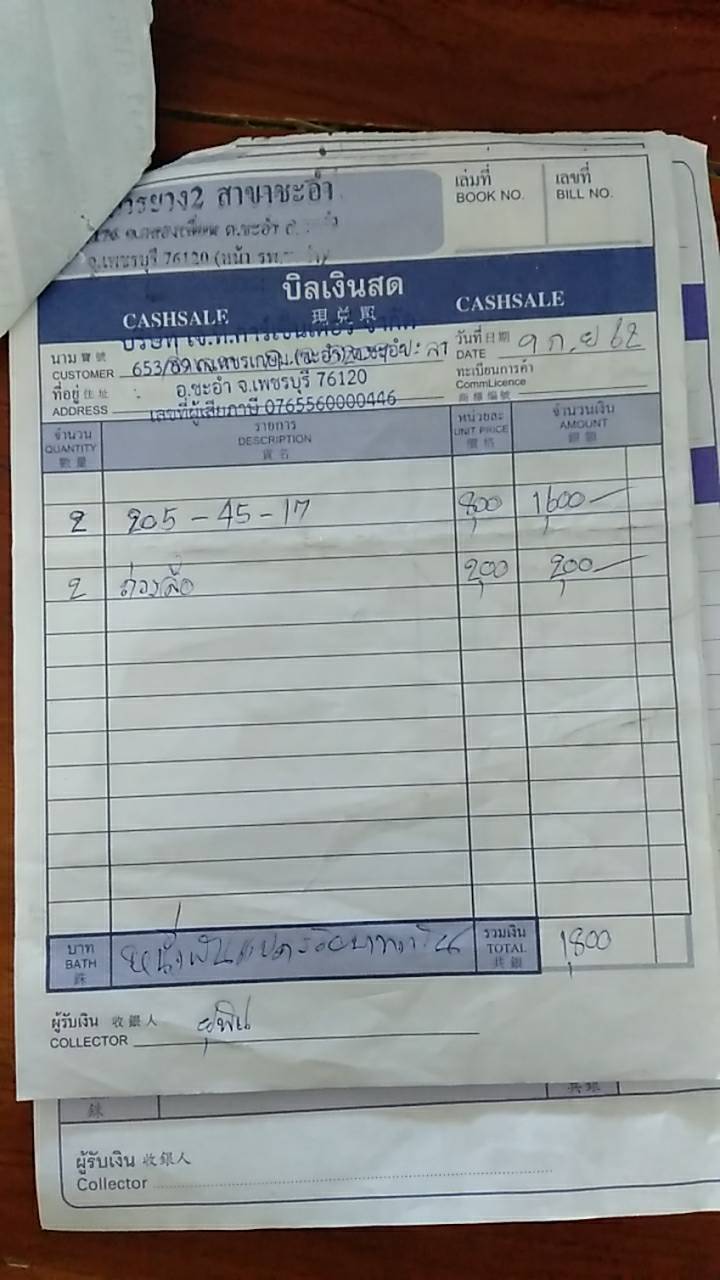 ารยาง2 สาขาชะอำ
ต.ชะอำ
จ.เพชรบุรี 76120 (หน้า รพ.
เล่มที่ เลขที่
BOOK NO. BILL NO.
บิลเงินสด
CASHSALE 現兑單 CASHSALE
บริษัท เจ.ที.คาร์เซ็นเตอร์ จำกัด
นาม 寶號 วันที่ 日期
CUSTOMER 653/ DATE 9 ก.ย 62
ที่อยู่ 住址 อ.ชะอำ จ.เพชรบุรี 76120 ทะเบียนการค้า
ADDRESS เลขที่ผู้เสียภาษี 0765560000446 CommLicence
商標編號
จำนวน รายการ หน่วยละ จำนวนเงิน
QUANTITY DESCRIPTION UNIT PRICE AMOUNT
數量 貨名 價格 銀額
2 205-45-17 800 1600
2 ถ่วงล้อ 200 200
บาท รวมเงิน
BATH หนึ่งพันแปดร้อยบาทถ้วน TOTAL 1,800
銖 共銀
ผู้รับเงิน 收銀人 ยุพิน
COLLECTOR
銖 共銀
ผู้รับเงิน 收銀人
Collector